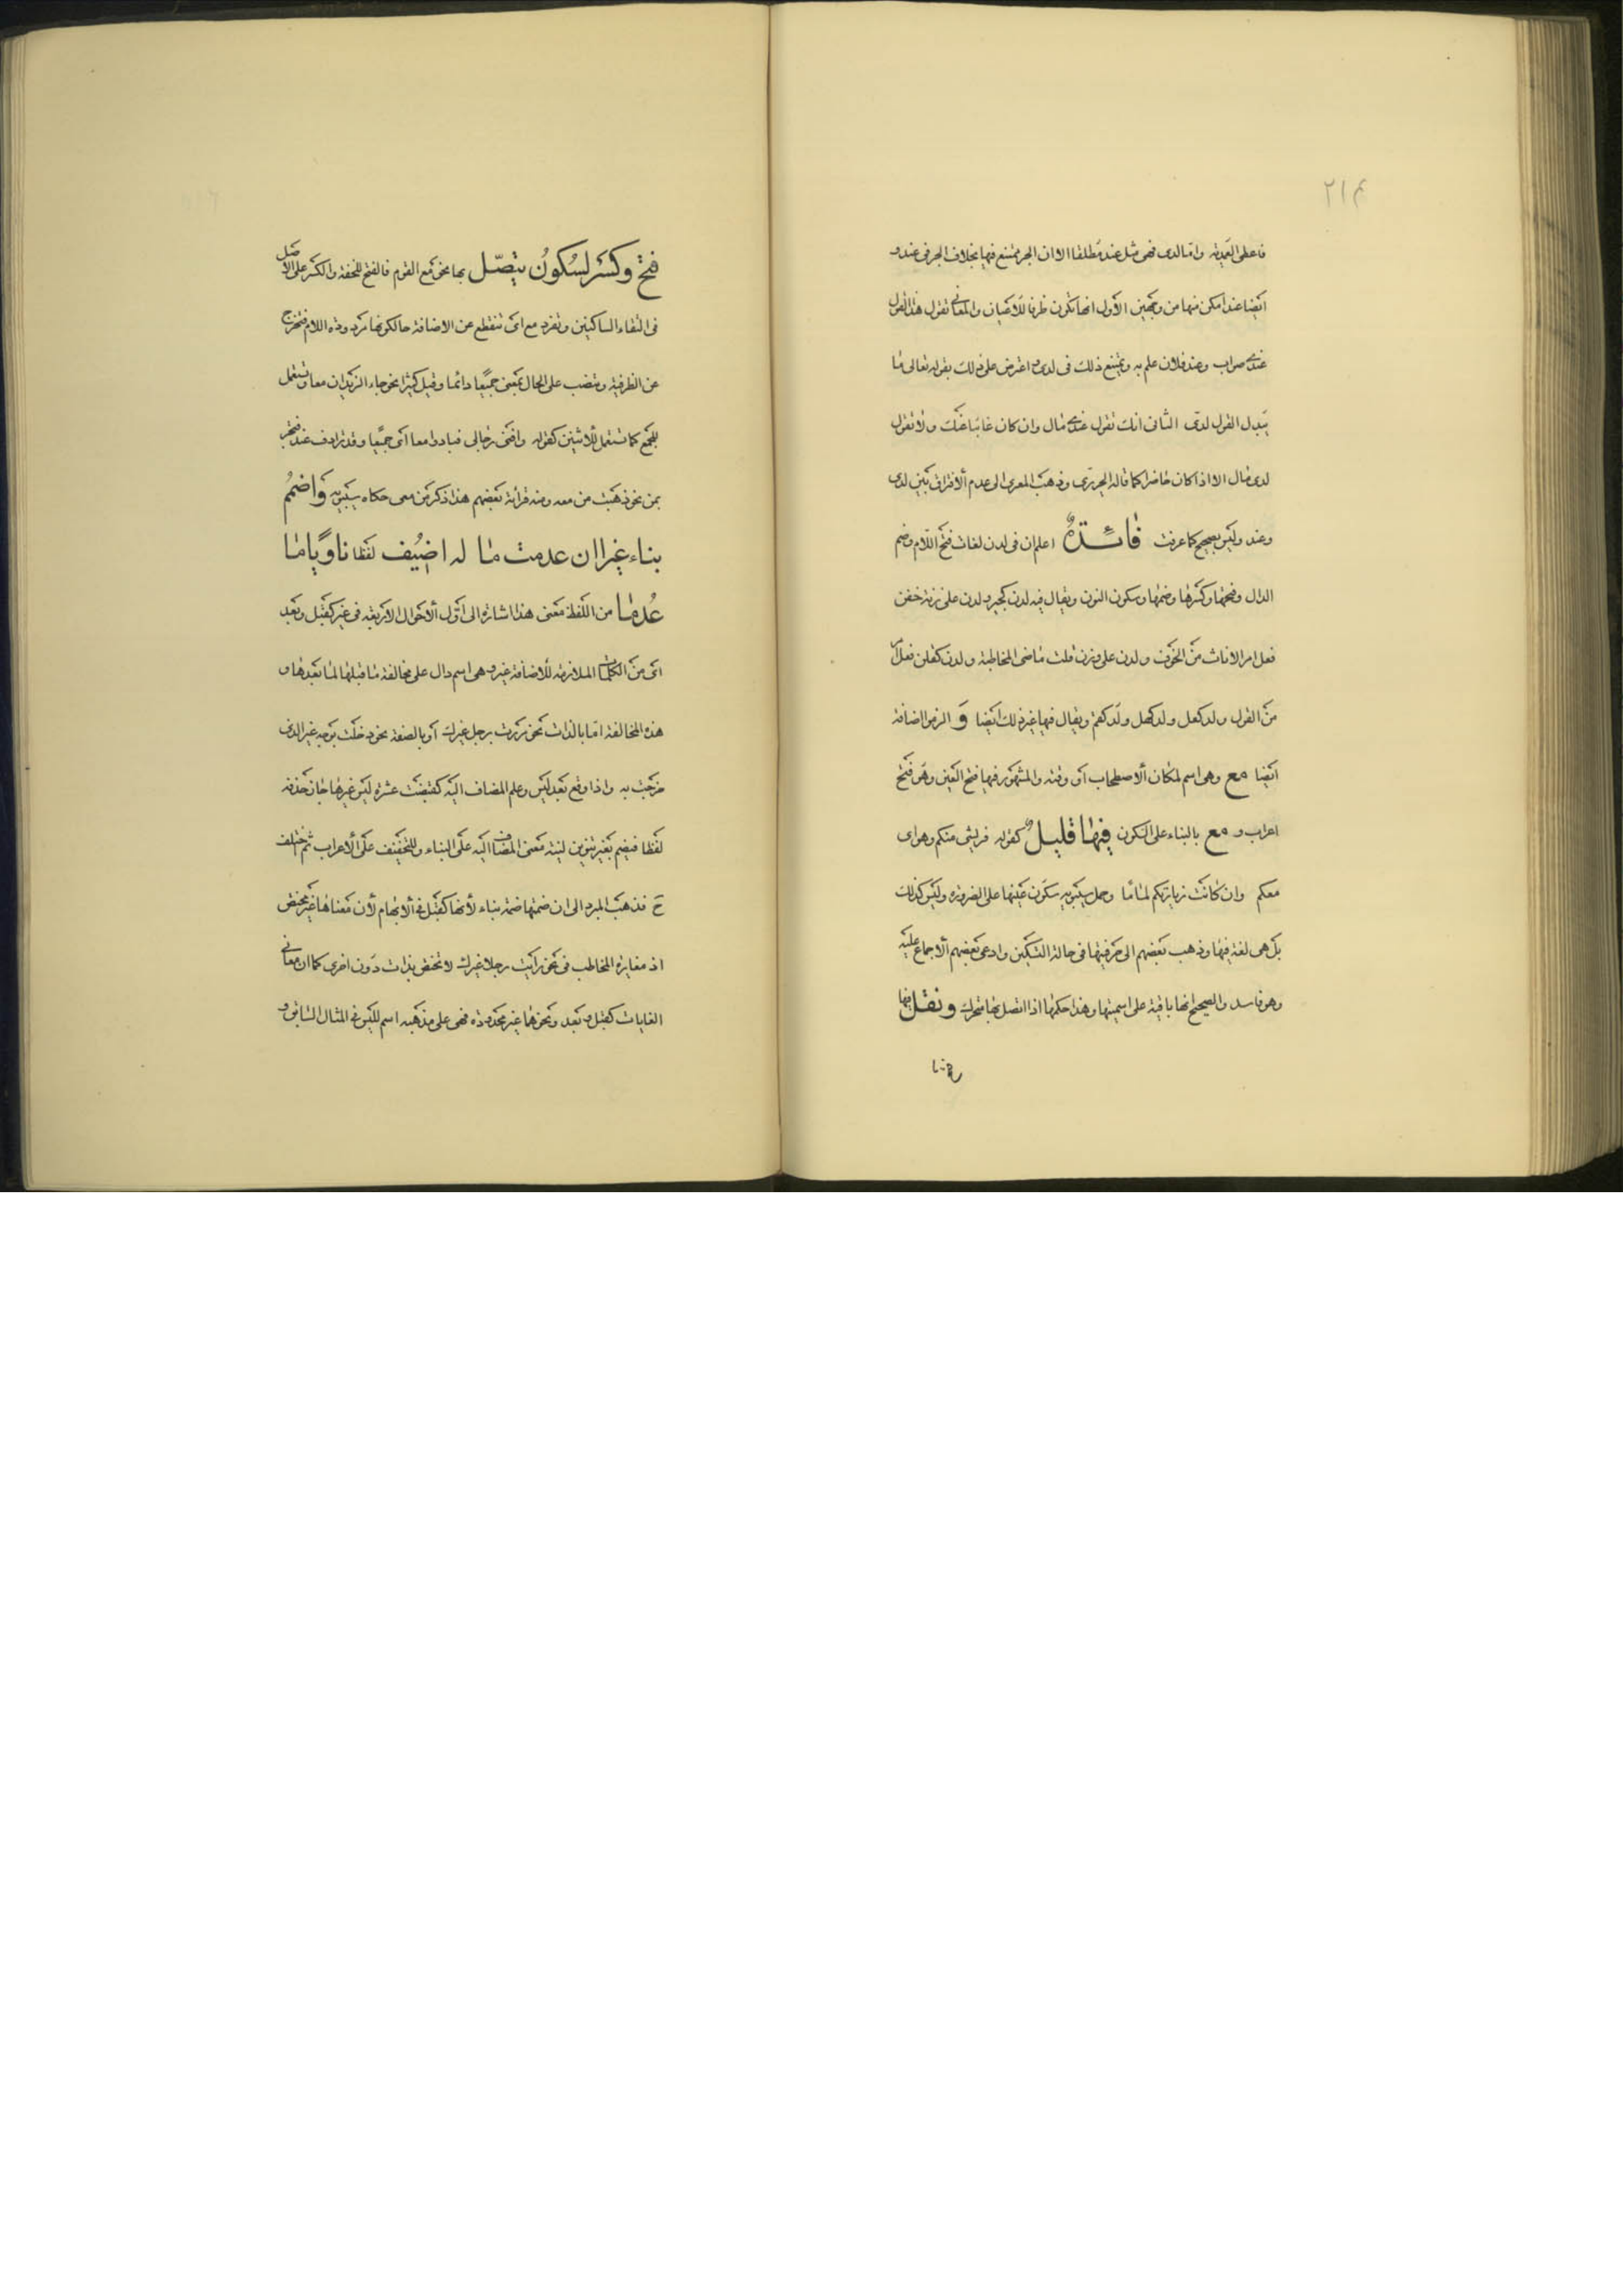 ٢١٤
فاعطى العبدية واما لدى فهى مثل عند مطلقا الا ان الجر ممتنع فيها بخلاف الجر فى عند و
ايضا عند امكن منها من وجهين الأول انها تكون ظرفا للأعيان والمعانى تقول هذا القول
عندى صواب وعند فلان علم به ويمتنع ذلك فى لدى واعترض على ذلك بقوله تعالى ما
يبدل القول لدى الثانى انك تقول عندى مال وان كان غائبا عنك ولا تقول
لدى مال الا اذا كان حاضرا كما قاله الحريرى وذهب المعرى الى عدم ألافتراق بين لدى
وعند وليس بصحيح كما عرفت فائدة اعلم ان فى لدن لغات فتح اللام وضم
الدال وفتحها وكسرها وضمها وسكون النون ويقال فيه لدن كجير ولدن على زنة خفن
فعل امر الاناث من الخوف ولدن على وزن قلت ماضى المخاطبة ولدن كقلن فعل امر
من القول ولد كعل ولد كهل ولد كهم ويقال فيها غير ذلك ايضا و الزموا اضافة
ايضا مع وهى اسم لمكان ألاصطحاب او وقته والمشهور فيها فتح العين وهو فتح
اعراب و مع بالبناء على السكون فيها قليل كقوله فريشى منكم وهواى
معكم وان كانت زيارتكم لماما وحمل سيبويه سكون عينها على الضرورة وليس كذلك
بل هى لغة فيها وذهب بعضهم الى حرفيتها فى حالة التسكين وادعى بعضهم ألاجماع عليه
وهو فاسد والصحيح انها باقية على اسميتها وهذا حكمها اذا اتصل بها متحرك ونقل فيها
فتح وكسر لسكون يتصل بها نحو مع القوم فالفتح للخفة والكسر على الأصل
فى التقاء الساكنين وتفرد مع اى تنقطع عن الاضافة حالكونها مردودة اللام فتخرج
عن الظرفية وتنصب على الحال بمعنى جميعا دائما وقيل كثيرا نحو جاء الزيدان معا وتستعمل
للجمع كما تستعمل للأثنين كقوله وافنى رجالى فبادوا معا اى جميعا وقد ترادف عند فتجر
بمن نحو ذهبت من معه ومنه قرائة بعضهم هذا ذكر من معى حكاه سيبويه واضمم
بناء غيرا ان عدمت ما له اضيف لفظا ناويا ما
عدما من اللفظ معنى هذا اشارة الى اول ألاحوال الاربعة فى غير كقبل وبعد
اى من الكلمات الملازمة للأضافة غير وهى اسم دال على مخالفة ما قبلها لما بعدها و
هذه المخالفة اما بالذات نحو مررت برجل غيرك أو بالصفة نحو دخلت بوجه غير الذى
خرجت به واذا وقع بعد ليس وعلم المضاف اليه كقبضت عشرة ليس غيرها جاز حذفه
لفظا فيضم بغير تنوين لنية معنى المضاف اليه على البناء وللتخفيف على ألاعراب ثم اختلف
ح فذهب المبرد الى ان ضمتها ضمة بناء لأنها كقبل فى ألابهام لأن معناها غير مختص
اذ مغايرة المخاطب فى نحو رايت رجلا غيرك لا تختص بذات دون اخرى كما ان معانى
الغايات كقبل وبعد ونحوهما غير محدودة فهى على مذهبه اسم لليس فى المثال السابق و